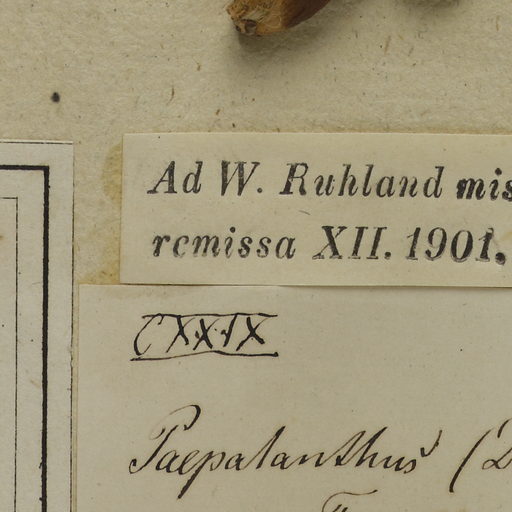 Ad W. Ruhland mis
remissa XII. 1901.
CXXIX
Paepalanthus (